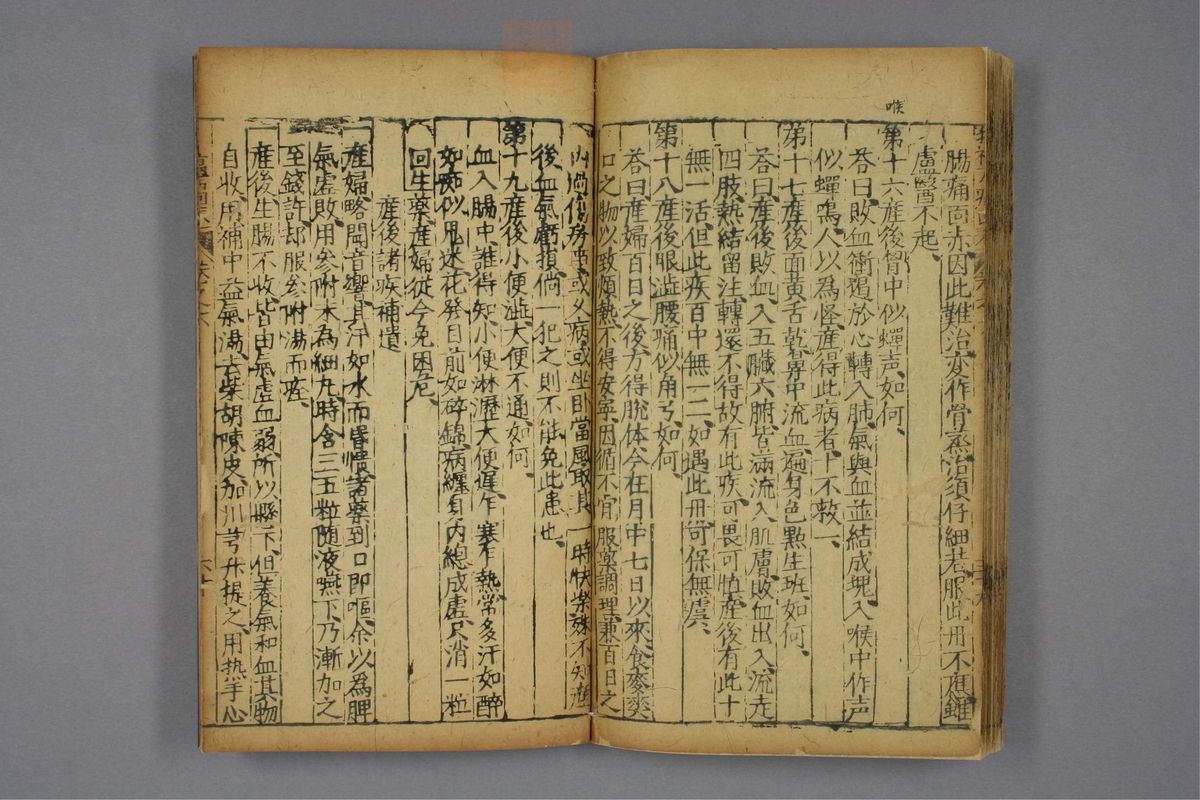 喉
腸痛面赤因此難治変作骨蒸治須仔細若服此丹不應雖
盧醫不起
第十六産後骨中似蟬声如何
荅曰敗血衝鬯於心轉入肺氣與血並結成塊入喉中作声
似蟬鳴人以為怪産得此病者十不救一
第十七産後面黃舌乾鼻中流血遍身色㸃生斑如何
荅曰産後敗血入五臟六腑皆滿流入肌膚敗血出入流走
四肢熱結留注轉還不得故有此疾可畏可怕産後有此十
無一活但此疾百中無一二如遇此丹可保無虞
第十八産後眼澁腰痛似角弓如何
荅曰産婦百日之後方得脫体今在月中七日以來食麥麪
口之物以致煩熱不得安寧因循不肯服藥調理兼百日之
内倘傷房室或父病或坐卧當風取良一時快樂殊不知産
後血氣虧損倘一犯之則不能免此患也
第十九産後小便澁大便不通如何
血入腸中誰得知小便淋瀝大便遲乍寒乍熱常多汗如醉
如痴似鬼迷花發目前如碎錦病纏身内總成虛尺消一粒
回生藥産婦從今免困危
産後諸疾補遺
産婦略聞音響其汗如水而昏憒諸藥到口即嘔余以為脾
氣虛敗用参附末為細丸時含三五粒随液嚥下乃漸加之
至錢許却服参附湯而痊
産後生腸不收皆由氣虛血弱所以縣下但養氣和血其物
自收用補中益氣湯去柴胡陳皮加川芎升提之用热手心